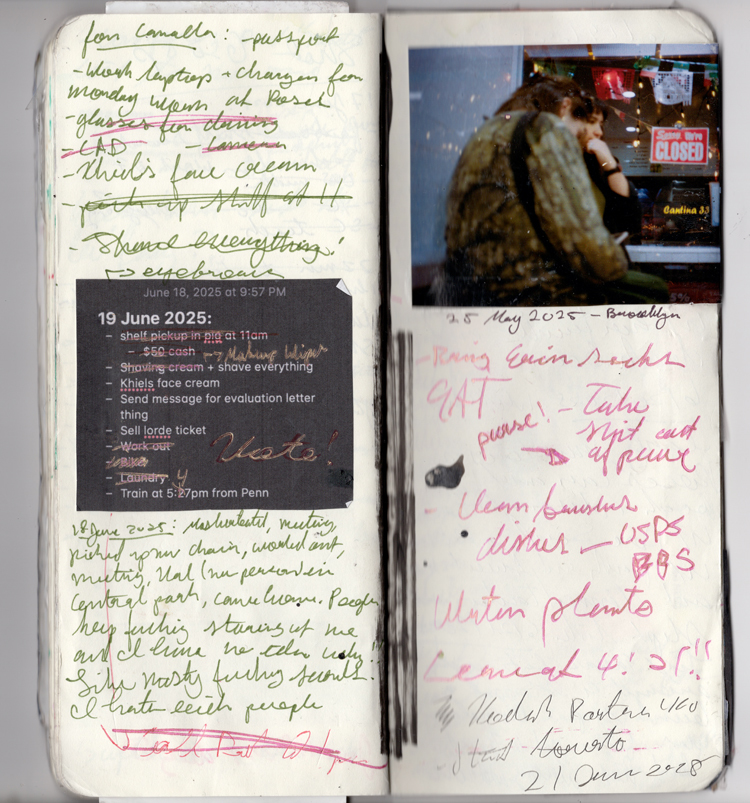 for Canada: - passport
- Work laptop + charger for
monday at
- glasses for
- CAD - camera
- Khiel's face cream
- pick up stuff at 11
- Shave everything!
→ eyebrows
June 18, 2025 at 9:57 PM
19 June 2025:
- shelf pickup in pia at 11am
- $50 cash → Makeup Wipes
- Shaving cream + shave everything
- Khiels face cream
- Send message for evaluation letter
thing
- Sell lorde ticket
- Work out
Vote!
- Laundry
- Train at 5:27pm from Penn
4
18 June 2025: meeting,
picked up chain, worked out,
meeting, (in person) in
central park, came home. People
keep fucking staring at me
and I have no idea why!
fucking
I hate people
Sorry we're
CLOSED
Cantina 33
25 May 2025 - Brooklyn
- Bring Erin socks
purse! - Take
shit out
of purse
- Clean
dishes - USPS
Water plants
Leave at 4:25!!
Kodak Portra 400
- toronto
21 June 2025